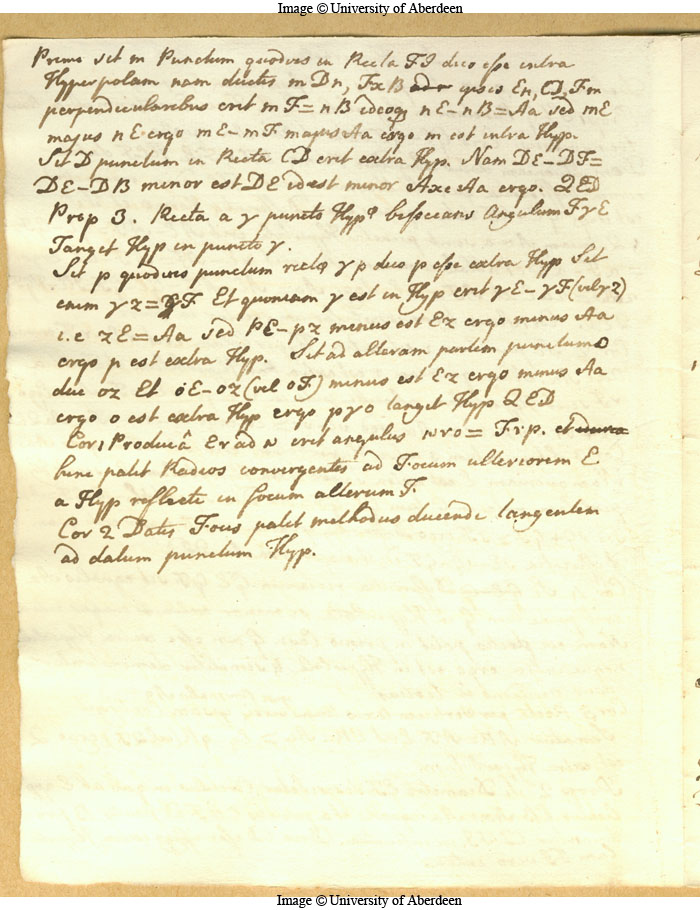 Image © University of Aberdeen
Primo sit m Punctum quodvis in Recta FI dico esse intra
Hyperbolam nam ductis m D n, F x B ipsis En, CD, Fm
perpendicularibus erit m F = n B ideoq n E - n B = Aa sed m E
majus n E ergo m E - m F majus Aa ergo m est intra Hyp.
Sit D punctum in Recta CD erit extra Hyp. Nam DE - DF =
DE - DB minor est id est minor Aa ergo. QED
Prop 3. Recta a γ puncto Hyp bissecans Angulum F γ E
Tanget Hyp in puncto γ.
Sit p quodvis punctum rectæ γ p dico p esse extra Hyp Sit
enim γ z = γ F Et quoniam γ est in Hyp erit γ E - γ F (vel γ z)
i.e z E = Aa sed PE - pz minus est Ez ergo minus Aa
ergo p est extra Hyp. Sit ad alteram partem punctum o
duc oz Et oE - oz (vel oF) minus est Ez ergo minus Aa
ergo o est extra Hyp ergo p γ o tanget Hyp QED
Cor 1 Producta E r ad n erit angulus n r o = F r p. et
hinc patet Radios convergentes ad Focum ulteriorem E
a Hyp reflecti in focum alterum F.
Cor 2 Datis Focis patet methodus ducendi tangentem
ad datum punctum Hyp.
Image © University of Aberdeen